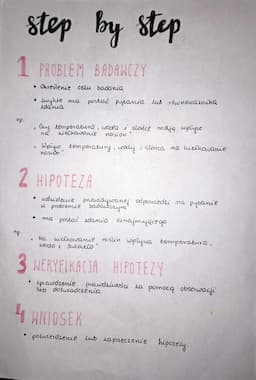 step by step
1 PROBLEM BADAWCZY
• określenie celu badania
• zwykle ma postać pytania lub równoważnika
zdania
np.
„Czy temperatura, woda i słońce mają wpływ
na kiełkowanie nasion"
„Wpływ temperatury, wody i słońca na kiełkowanie
nasion"
2 HIPOTEZA
• udzielenie przewidywanej odpowiedzi na pytanie
w problemie badawczym
• ma postać zdania oznajmującego
np.
„Na kiełkowanie roślin wpływa temperatura,
woda i światło"
3 WERYFIKACJA HIPOTEZY
• sprawdzenie prawdziwości za pomocą obserwacji
lub doświadczenia
4 WNIOSEK
• potwierdzenie lub zaprzeczenie hipotezy